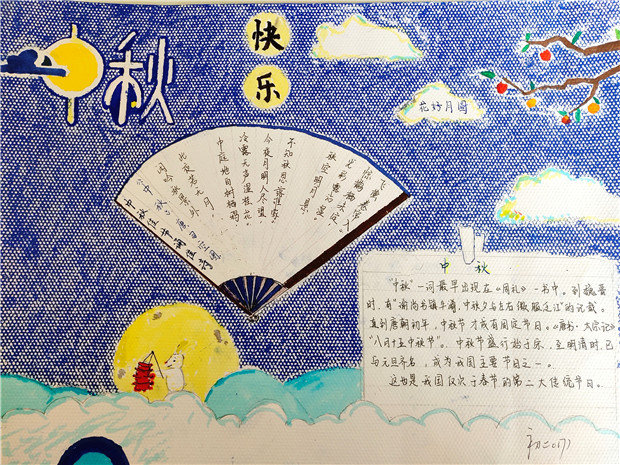 中秋
快
乐
花好月圆
闲吟秋景外
此夜若无月，
中庭地白树栖鸦，
冷露无声湿桂花。
今夜月明人尽望，
不知秋思落谁家。
秋空明月悬，
光彩露沾湿。
惊鹊栖未定，
飞萤卷帘入
中秋
"中秋"一词最早出现在《周礼》一书中。到魏晋
时，有"谕尚书镇牛渚，中秋夕与左右微服泛江"的记载。
直到唐朝初年，中秋节才成有固定节日。《唐书·太宗记》
"八月十五中秋节"。中秋节盛行始于宋，至明清时，已
与元旦齐名，成为我国主要节日之一。
这也是我国仅次于春节的第二大传统节日。
初二(17)